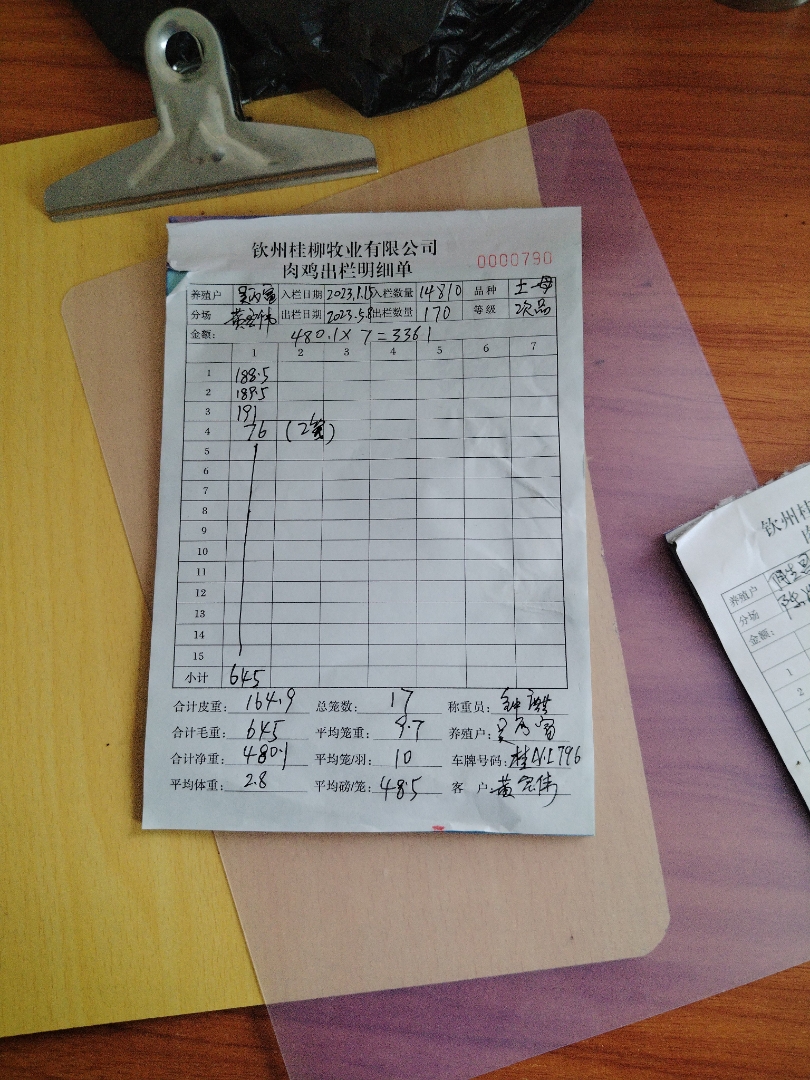 钦州桂柳牧业有限公司
肉鸡出栏明细单 0000790
养殖户 入栏日期 2023.1.15 入栏数量 14810 品种 土母
分场 黄宏伟 出栏日期 2023.5.8 出栏数量 170 等级 次品
金额: 480.1×7=3361
1 2 3 4 5 6 7
1 188.5
2 189.5
3 191
4 76
5
6
7
8
9
10
11
12
13
14
15
小计 645
合计皮重: 164.9 总笼数: 17 称重员:
合计毛重: 645 平均笼重: 9.7 养殖户:
合计净重: 480.1 平均笼/羽: 10 车牌号码:
平均体重: 2.8 平均磅/笼: 48.5 客户 黄宏伟
钦州桂
养殖户
分场
金额:
1
2
3